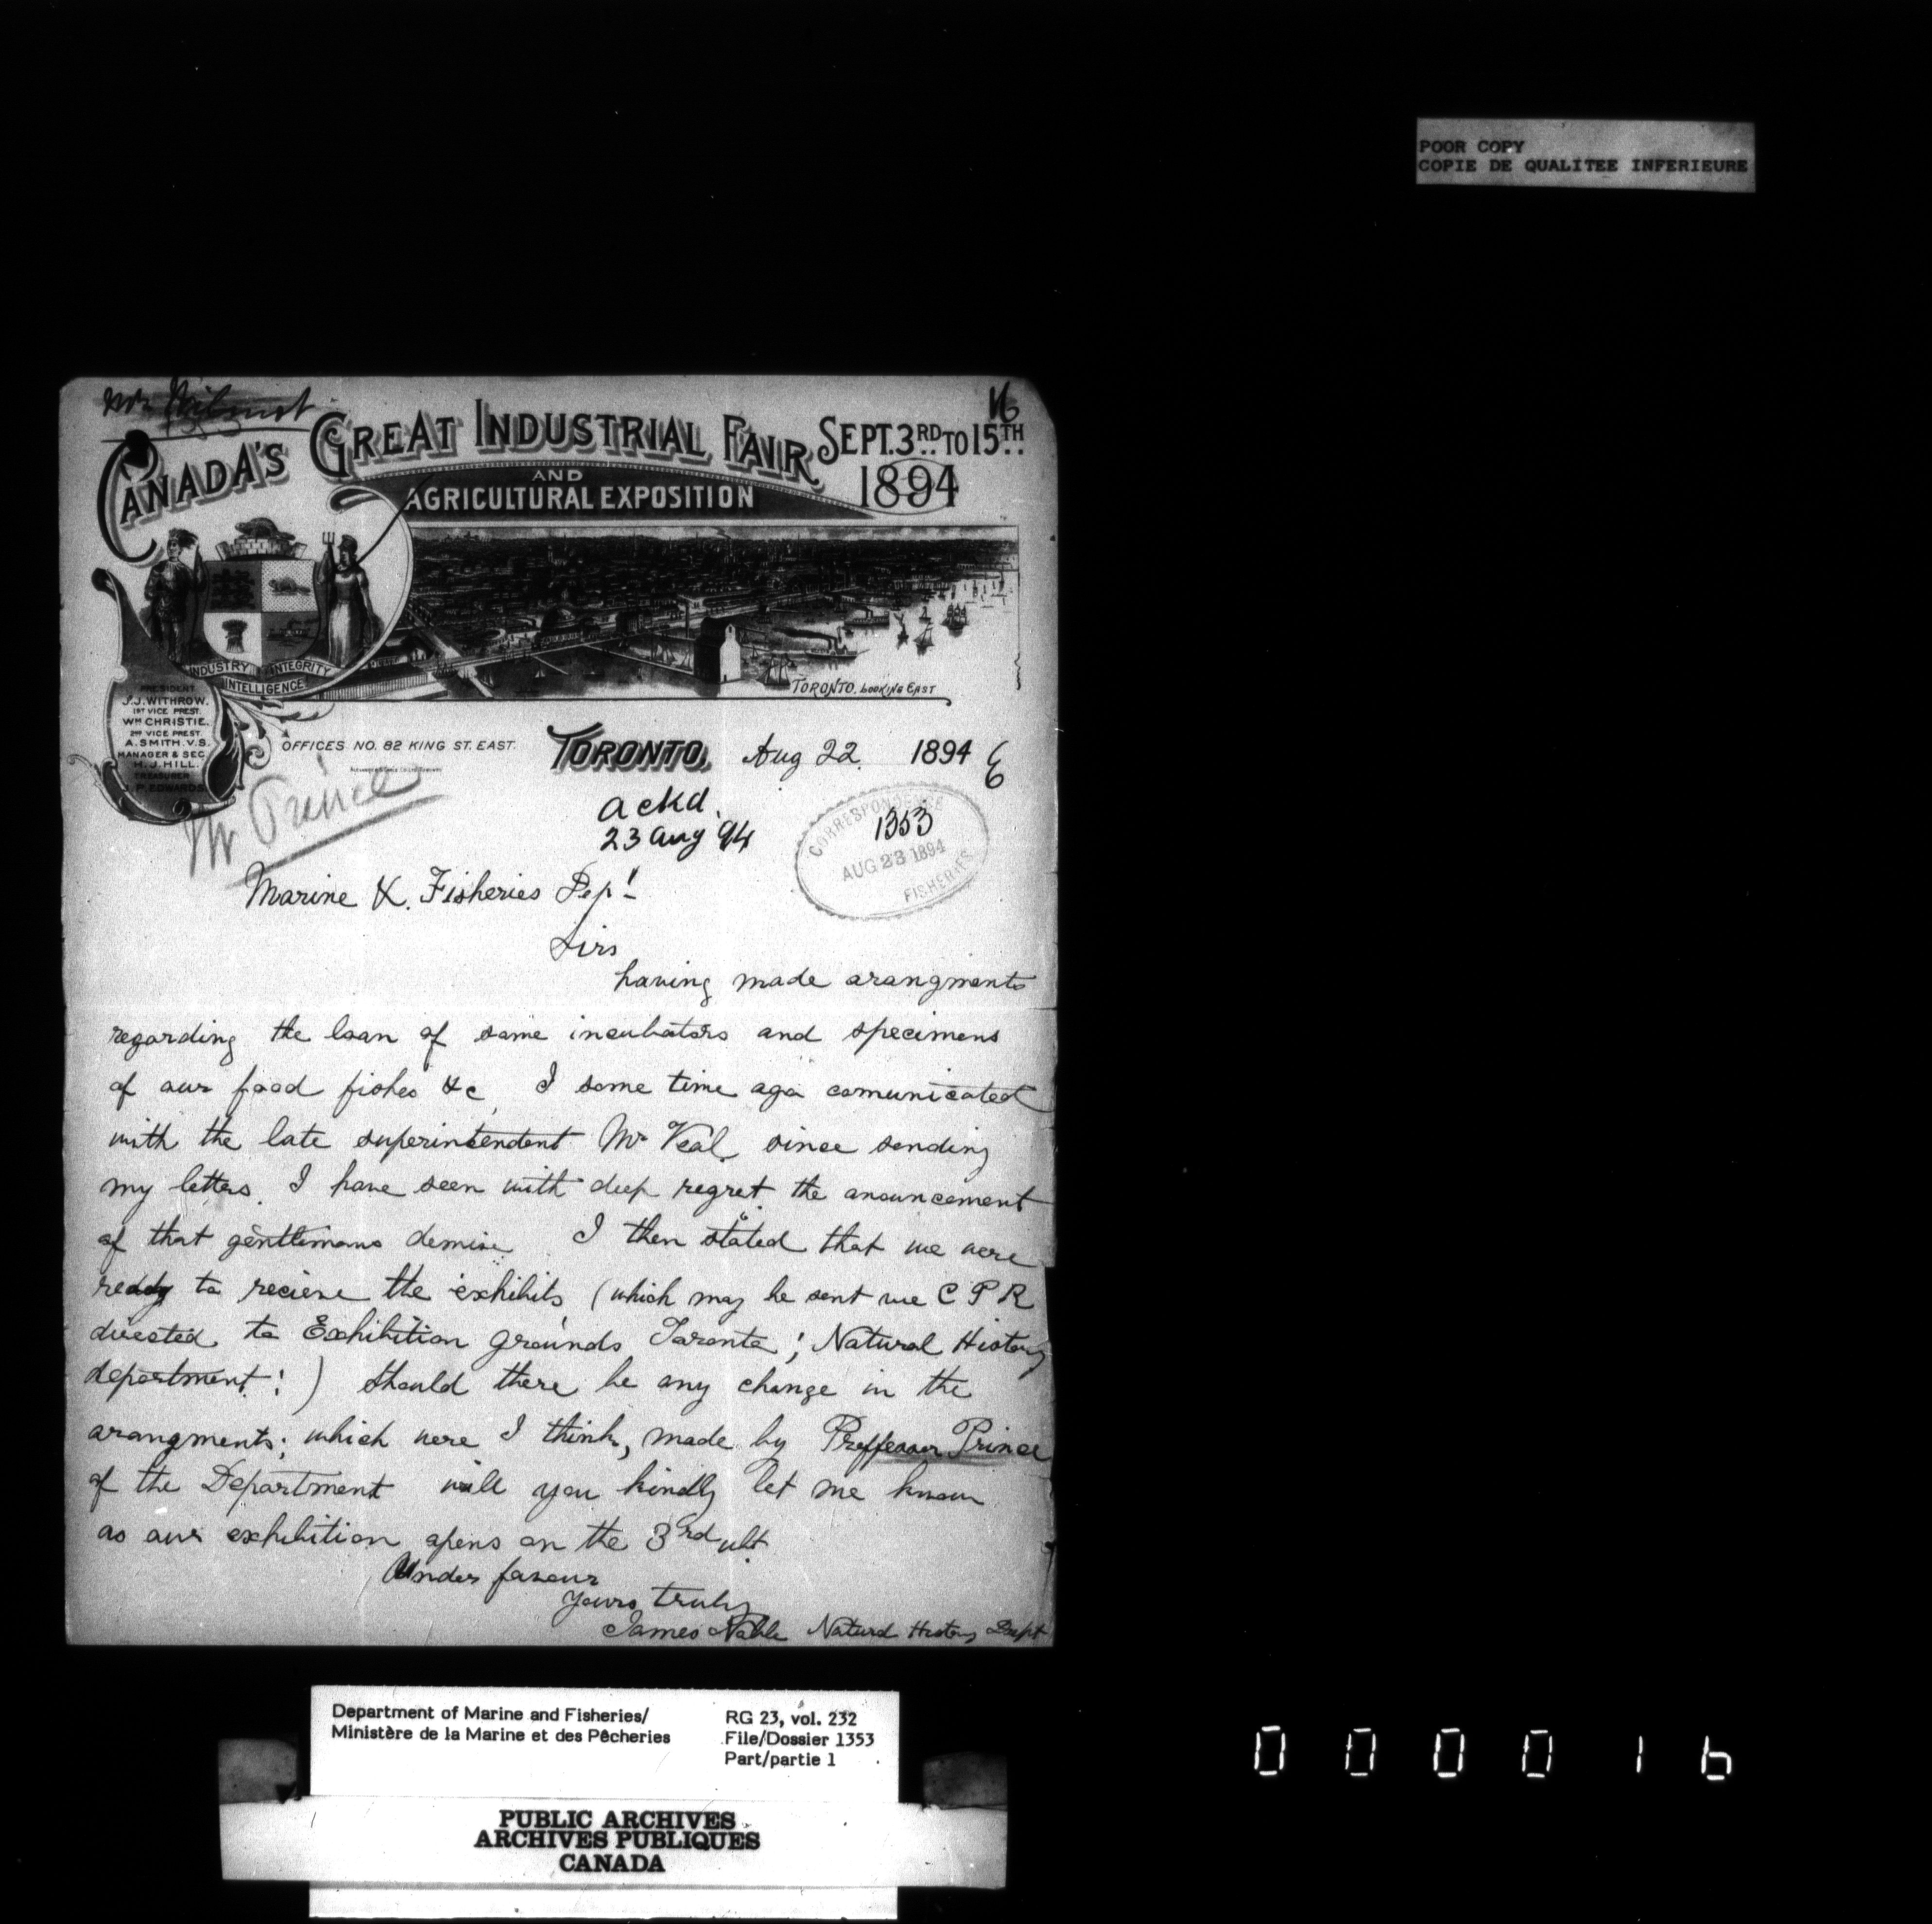 POOR COPY
COPIE DE QUALITEE INFERIEURE
Mr Wilmot
16
CANADA'S GREAT INDUSTRIAL FAIR SEPT. 3RD TO 15TH
AND
AGRICULTURAL EXPOSITION
1894
INDUSTRY INTEGRITY
INTELLIGENCE
TORONTO, LOOKING EAST
PRESIDENT
J.J. WITHROW.
1ST VICE PREST.
WM CHRISTIE.
2ND VICE PREST.
A. SMITH. V.S.
MANAGER & SEC.
H.J. HILL.
TREASURER
J. P. EDWARDS.
OFFICES NO. 82 KING ST. EAST.
TORONTO, Aug 22. 1894
Mr Prince
ackd.
23 Aug 94
CORRESPONDENCE
1353
AUG 23 1894
FISHERIES
Marine &. Fisheries Dept
Sirs
having made arangments
regarding the loan of some incubators and specimens
of our food fishes &c I some time ago comunicated
with the late superintendent Mr Veal. since sending
my letters. I have seen with deep regret the anouncement
of that gentlimans demise. I then stated that we were
reddy to recieve the exhibits (which may be sent me C P R
directed to Exhibition grounds Toronto; Natural History
department!) should there be any change in the
arangments; which were I think, made by Proffessor Prince
of the Department will you kindly let me know
as our exhibition opens on the 3rd ult
Under favour
Yours truly
James Noble Natural History Dept
Department of Marine and Fisheries/
Ministère de la Marine et des Pêcheries
RG 23, vol. 232
File/Dossier 1353
Part/partie 1
PUBLIC ARCHIVES
ARCHIVES PUBLIQUES
CANADA
000016